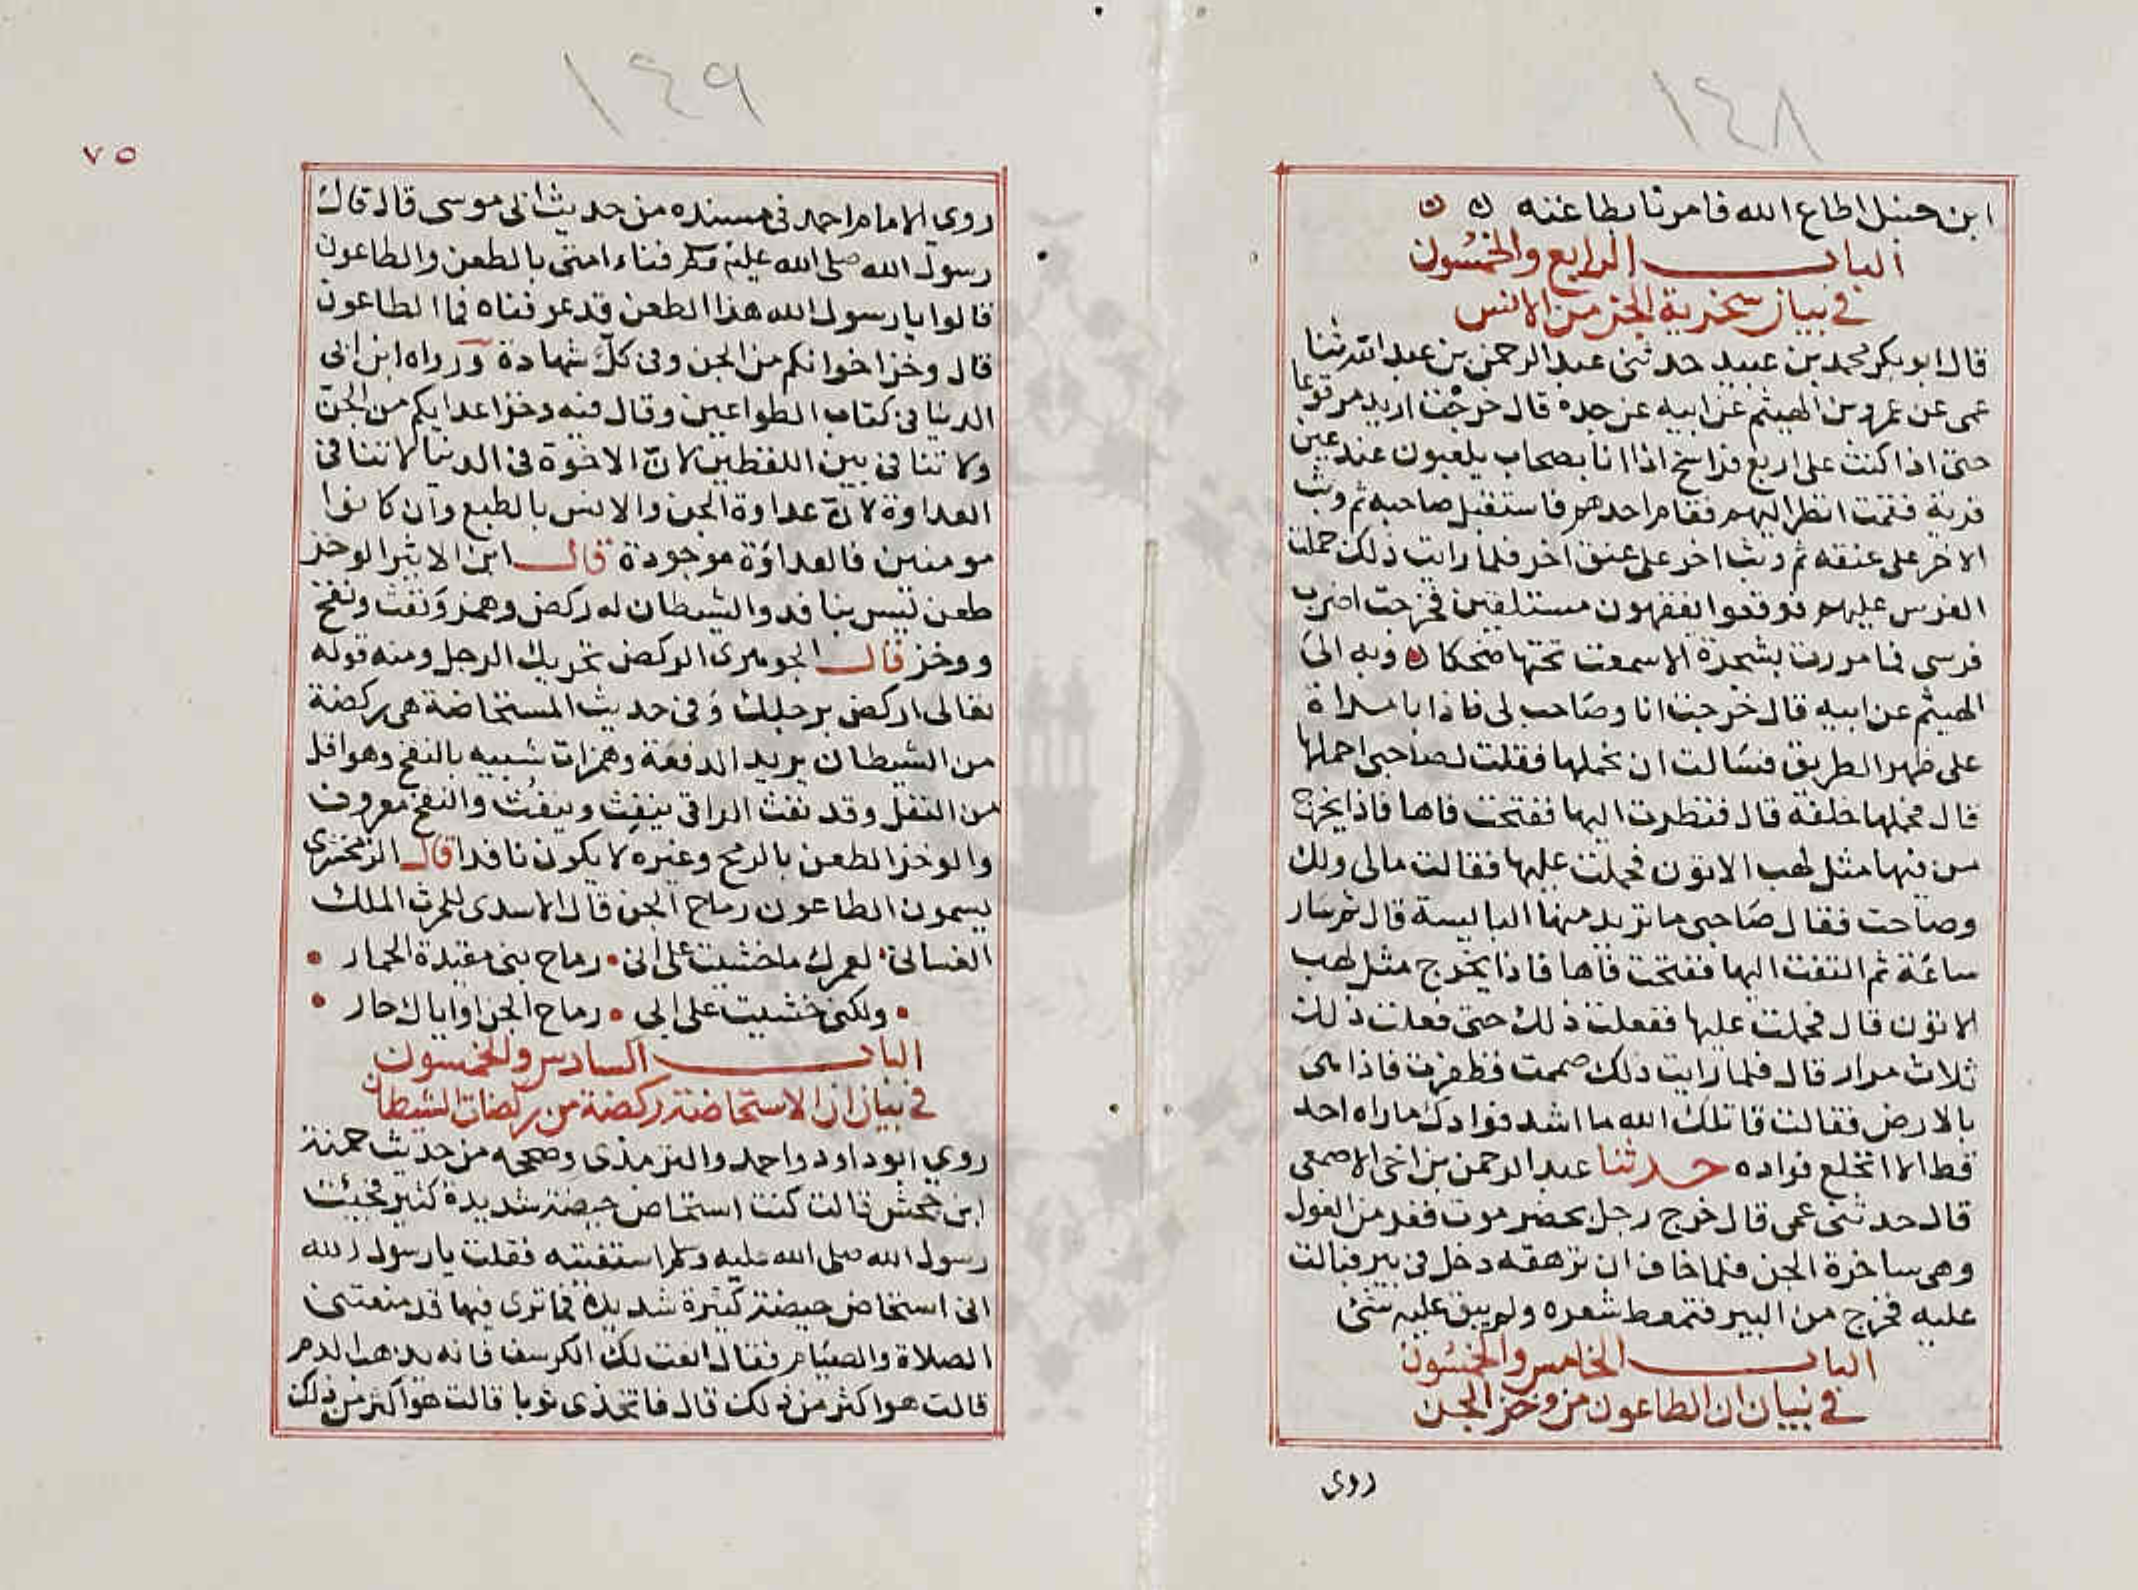 ١٤٨
ابن حنبل اطاع الله فامرنا بطاعته
الباب الرابع والخمسون
في بيان سخرية الجن من الانس
قال ابو بكر محمد بن عبيد حدثنى عبد الرحمن بن عبد الله ثنا
عمى عن عمرو بن الهيثم عن ابيه عن جده قال خرجت اريد
حتى اذا كنت على اربع فراسخ اذا انا بصحاب يلعبون عند عين
قرية فقمت انظر اليهم فقام احدهم فاستقبل صاحبه ثم وثب
الاخر على عنقه ثم وثب اخر على عنق اخر فلما رايت ذلك حملت
الفرس عليهم فوقعوا يقهقهون مستلقين فخرجت اضرب
فرسى فما مررت بشجرة الا سمعت تحتها ضحكا وبه الى
الهيثم عن ابيه قال خرجت انا وصاحب لى فاذا بامراة
على ظهر الطريق فسالت ان نحملها فقلت لصاحبى احملها
قال فحملها خلفه قال فنظرت اليها ففتحت فاها فاذا يخرج
من فيها مثل لهب الاتون فحملت عليها فقالت مالى ولك
وصاحت فقال صاحبى ما تريد منها البايسة قال ثم سار
ساعة ثم التفت اليها ففتحت فاها فاذا يخرج مثل لهب
الاتون قال فحملت عليها ففعلت ذلك حتى فعلت ذلك
ثلاث مرار قال فلما رايت ذلك صممت فطفرت فاذا هى
بالارض فقالت قاتلك الله ما اشد فوادك ماراه احد
قط الا انخلع فواده حدثنا عبد الرحمن بن اخى الاصمعى
قال حدثنى عمى قال خرج رجل بحضر موت ففر من الغول
وهى ساخرة الجن فلما خاف ان ترهقه دخل فى بير فبالت
عليه فخرج من البير فتمعط شعره ولم يبق عليه شئ
الباب الخامس والخمسون
في بيان ان الطاعون من وخز الجن
روى
١٤٩
٧٥
روى الامام احمد فى مسنده من حديث ابى موسى قال قال
رسول الله صلى الله عليه وسلم فناء امتى بالطعن والطاعون
قالوا يا رسول الله هذا الطعن قد عرفناه فما الطاعون
قال وخز اخوانكم من الجن وفى كل شهادة ورواه ابن ابى
الدنيا فى كتاب الطواعين وقال فيه وخز اعدايكم من الجن
ولا تنافى بين اللفظين لان الاخوة فى الدين لا تنافى
العداوة لان عداوة الجن والانس بالطبع وان كانوا
مومنين فالعداوة موجودة قال ابن الاثير الوخز
طعن ليس بنافد والشيطان له ركض وهمز ونفث ونفخ
ووخز قال الجوهرى الركض تحريك الرجل ومنه قوله
تعالى اركض برجلك وفى حديث المستحاضة هى ركضة
من الشيطان يريد الدفعة وهمزات شبيه بالنفخ وهو اقل
من التفل وقد نفث الراقى ينفِث وينفُث والنفخ معروف
والوخز الطعن بالرمح وغيره لا يكون نافدا قال الزمخشرى
يسمون الطاعون رماح الجن قال الاسدى للحرث الملك
الغسانى لعمرك ما خشيت على ابى رماح بنى مقيدة الحمار
ولكنى خشيت على ابى رماح الجن او اياك حار
الباب السادس والخمسون
في بيان ان الاستحاضة ركضة من ركضات الشيطان
روى ابو داود واحمد والترمذى وصححه من حديث حمنة
ابن جحش قالت كنت استحاض حيضة شديدة كثير فجيئت
رسول الله صلى الله عليه وسلم استفتيه فقلت يا رسول الله
انى استحاض حيضة كثيرة شديدة فما ترى فيها قد منعتنى
الصلاة والصيام فقال انعت لك الكرسف فانه يدهب الدم
قالت هو اكثر من ذلك قال فاتخذى ثوبا قالت هو اكثر من ذلك